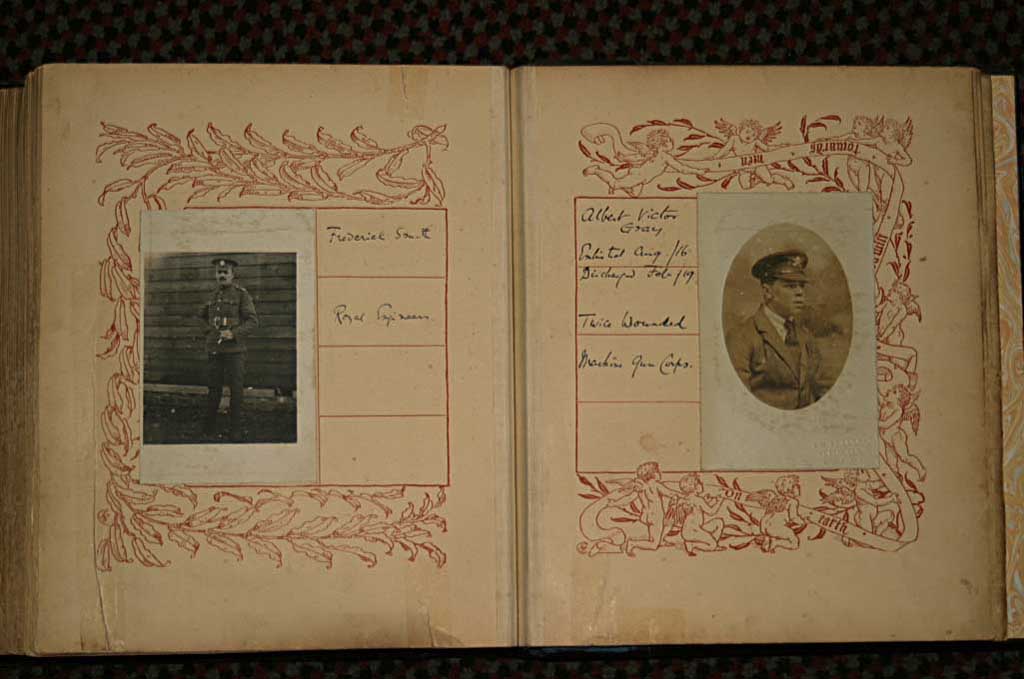 Frederick Smith
Royal Engineers.
Albert Victor
Gray
Enlisted Aug. /16
Discharged Feb /19
Twice Wounded
Machine Gun Corps.
towards
men
on
earth